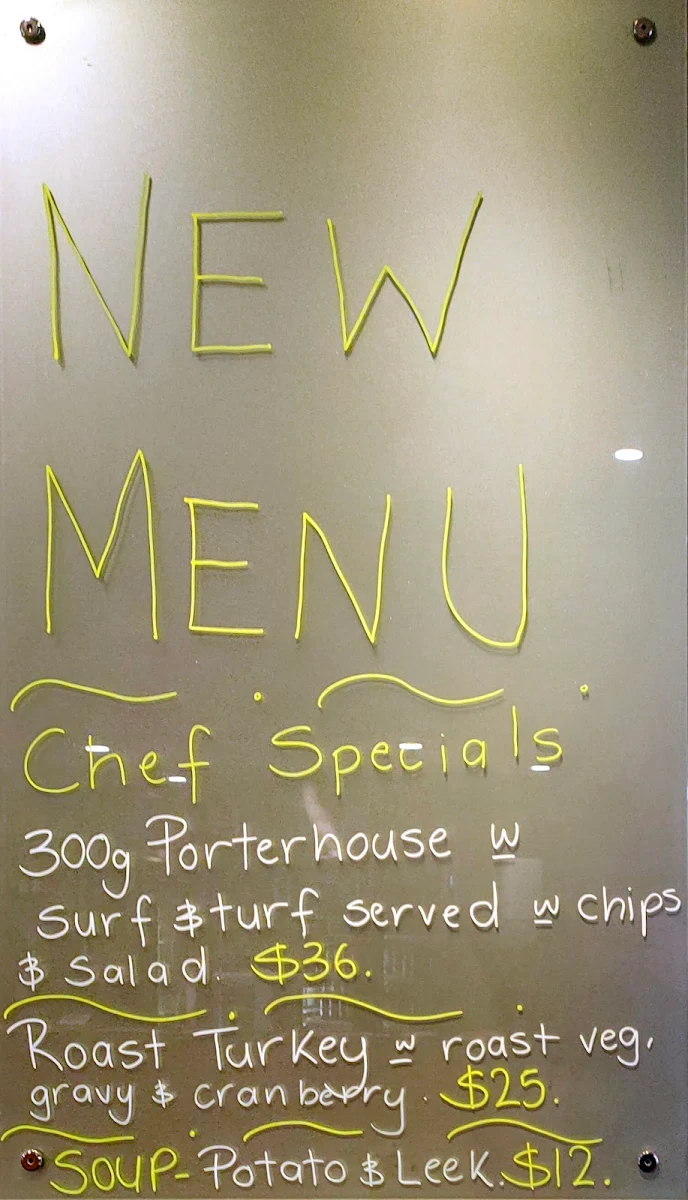 NEW
MENU
Chef Specials
300g Porterhouse w
surf & turf served w chips
& Salad. $36.
Roast Turkey w roast veg,
gravy & cranberry. $25.
SOUP- Potato & Leek. $12.